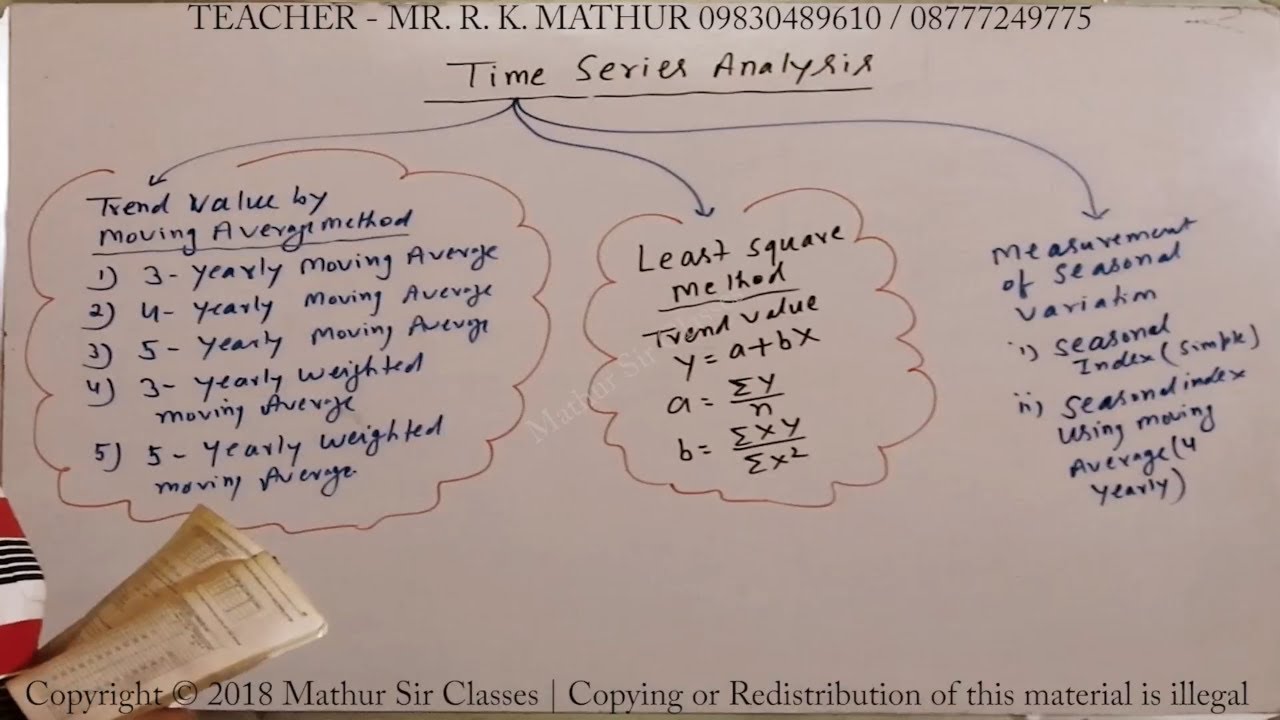 TEACHER - MR. R. K. MATHUR 09830489610 / 08777249775
Time Series Analysis
Trend Value by
Moving Average method
1) 3- Yearly Moving Average
2) 4- Yearly Moving Average
3) 5- Yearly Moving Average
4) 3- Yearly Weighted
moving Average
5) 5- Yearly Weighted
moving Average.
Least square
Method
Trend value
Y = a + b X
a = ΣY / n
b = ΣXY / ΣX²
Measurement
of Seasonal
Variation
i) Seasonal
Index (Simple)
ii) Seasonal index
Using moving
Average (4
Yearly)
Mathur Sir
Copyright © 2018 Mathur Sir Classes | Copying or Redistribution of this material is illegal